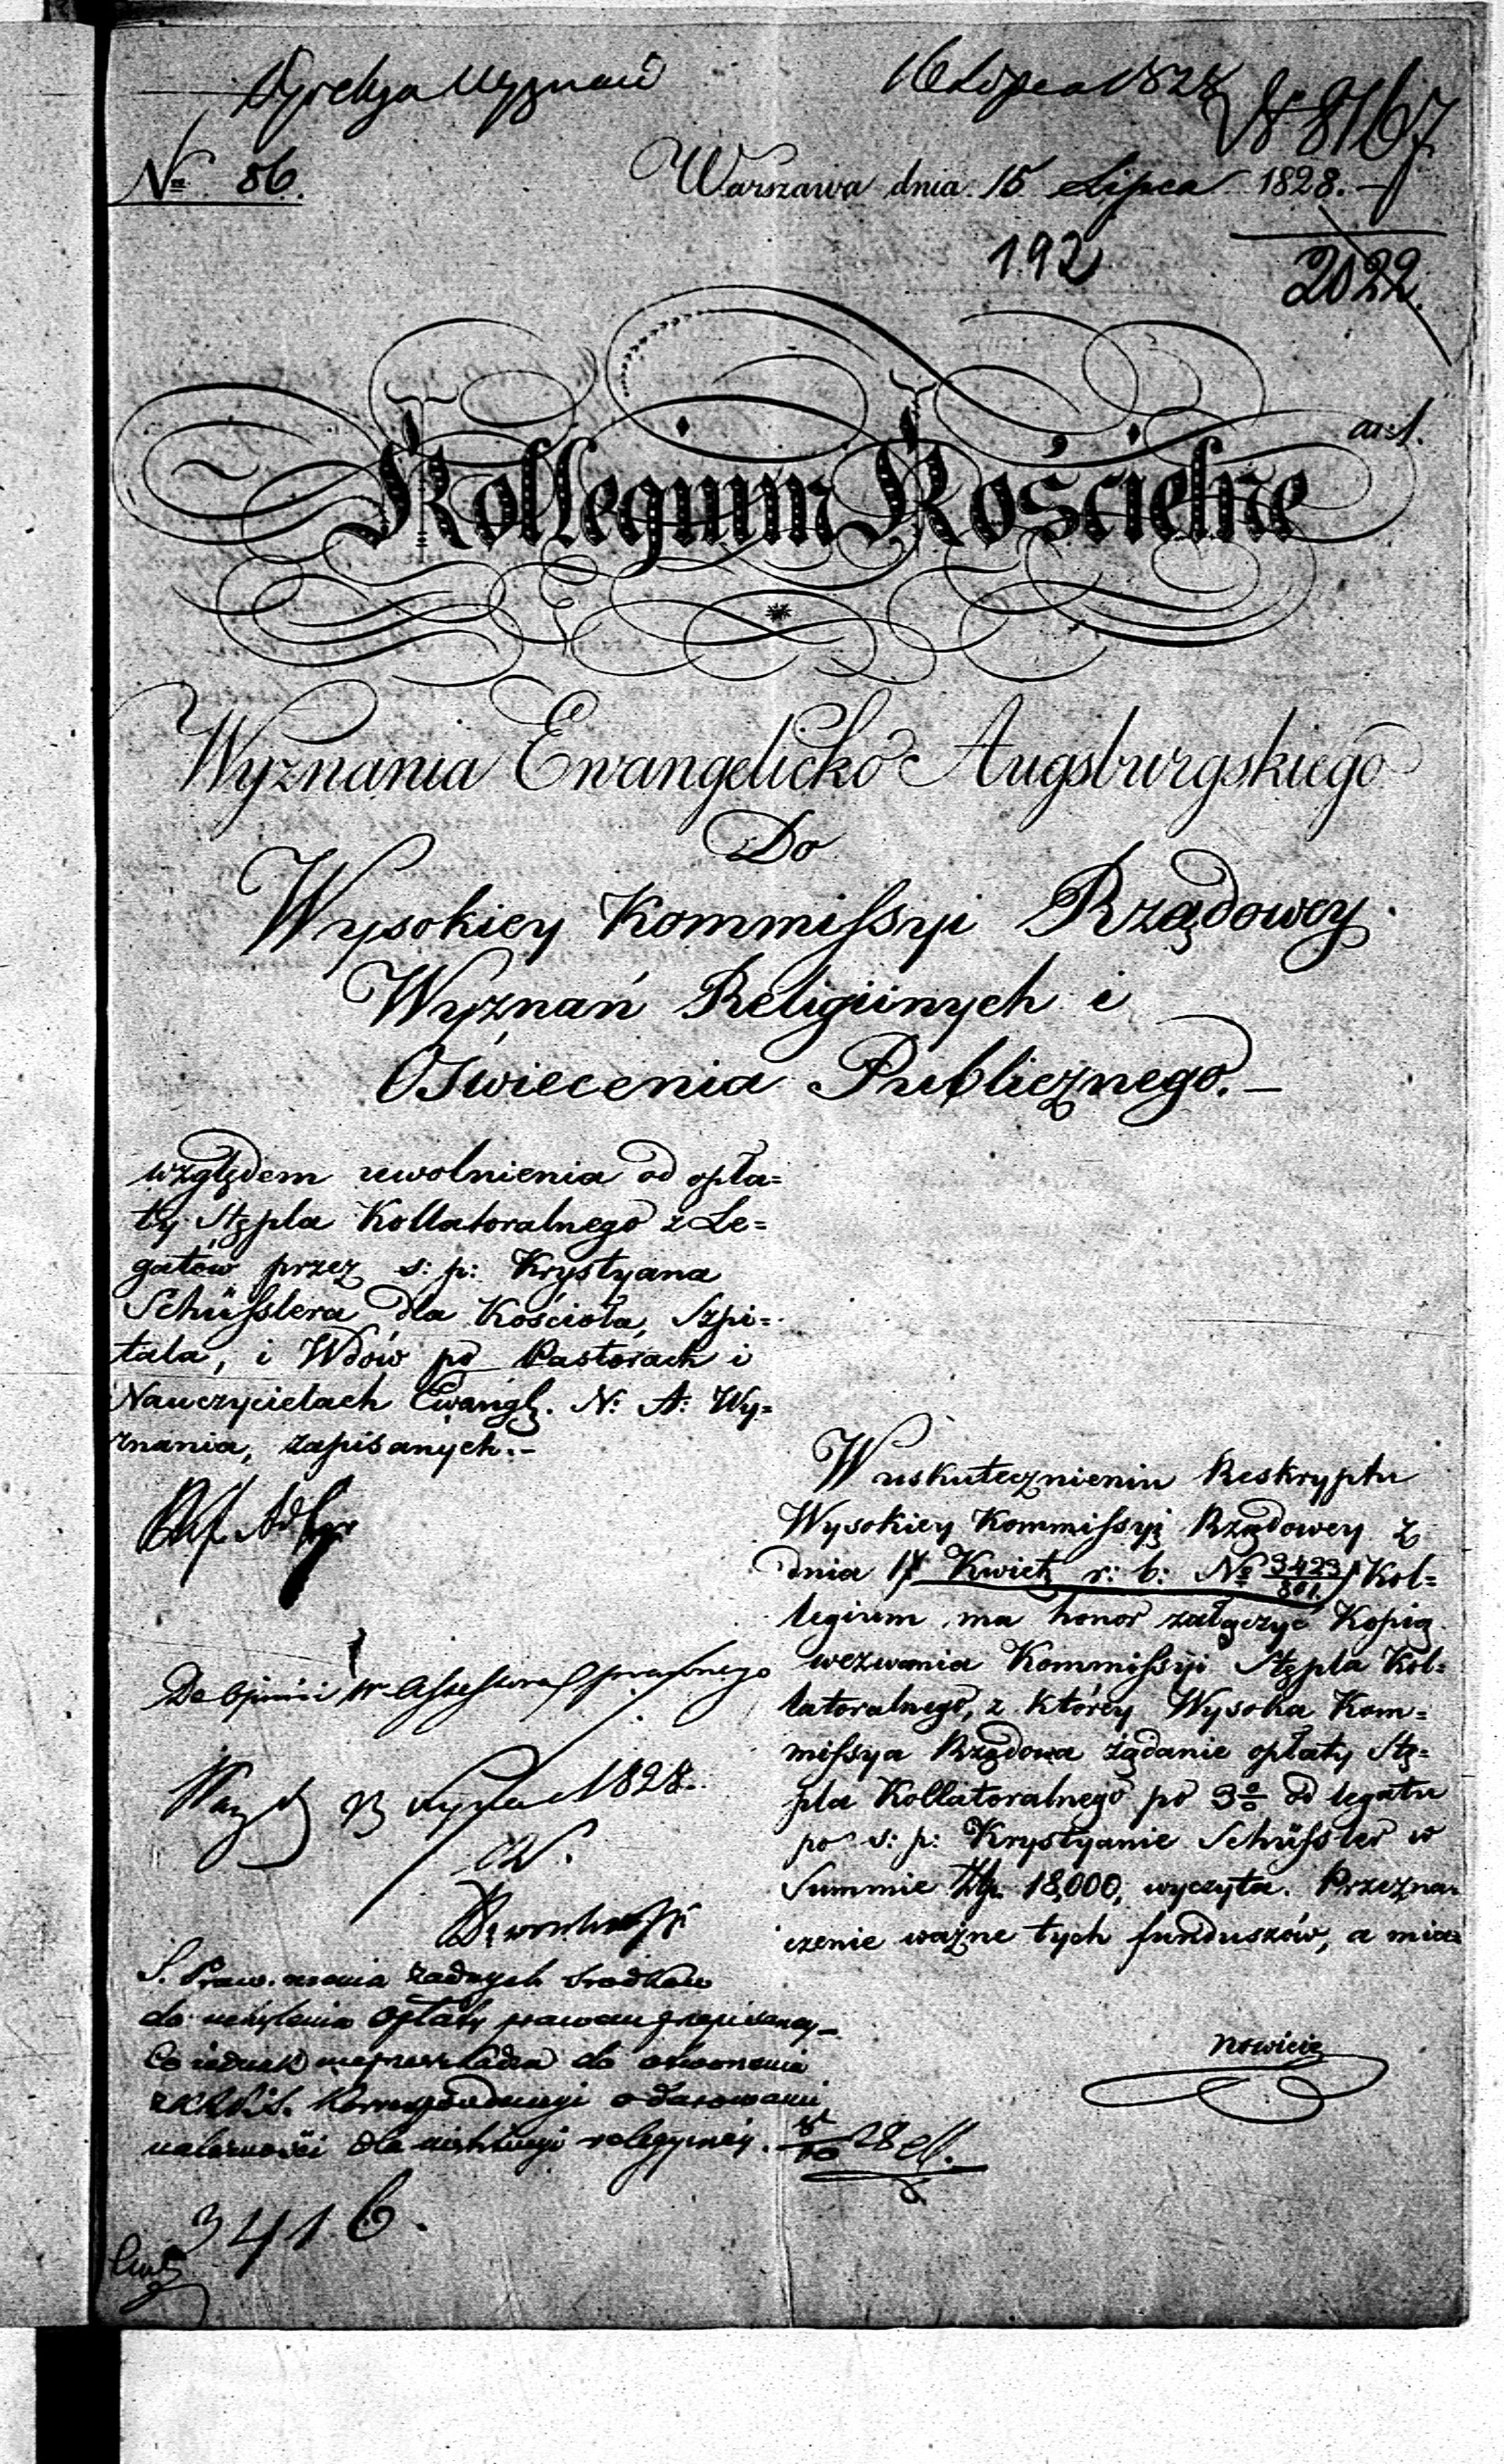 Dyrekcya Wyznań
16 Lipca 1828
N 8167
2022
No 86.
Warszawa dnia 15 Lipca 1828.
192
Kollegium Kościelne
Wyznania Ewangelicko Augsburgskiego
Do
Wysokiey Kommissyi Rządowey
Wyznań Religiinych i
Oświecenia Publicznego.
względem uwolnienia od opła=
ty Stępla Kollatoralnego z Le=
gatów przez ś: p: Krystyana
Schüsslera dla Kościoła, Szpi=
tala, i Wdów po Pastorach i
Nauczycielach Ewangl. N: A: Wy=
znania, zapisanych.-
Do Opinii W. Assessora prawnego
1828.
S. Praw. niema żadnych środków
do uchylenia Opłaty prawem przepisaney
Co iednak nieprzeszkadza do
Korrespondencyi o darowanie
należności dla religyiney. 28
3416.
W uskutecznieniu Reskryptu
Wysokiey Kommissyi Rządowey z
dnia 17 Kwiet. r: b: No 3423/801. Kol=
legium ma honor załączyć Kopią
wezwania Kommissyi Stępla Kol=
latoralnego, z którey Wysoka Kom=
missya Rządowa żądanie opłaty Stę=
pla Kollatoralnego po 3 % od legatu
po ś: p: Krystyanie Schüssler w
Summie Złp. 18,000, wyczyta. Przezna=
czenie ważne tych funduszów, a mia=
nowicie